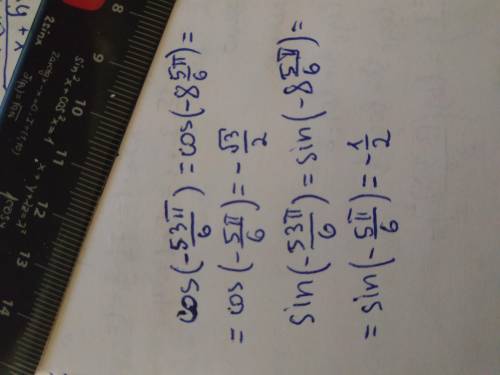 cos(-53π/6) = cos(-8 5π/6) =
= cos(-5π/6) = -√3/2
sin(-53π/6) = sin(-8 5π/6) =
= sin(-5π/6) = -1/2
8
9
10
11
12
13
14
2sinx
sin²x + cos²x = 1